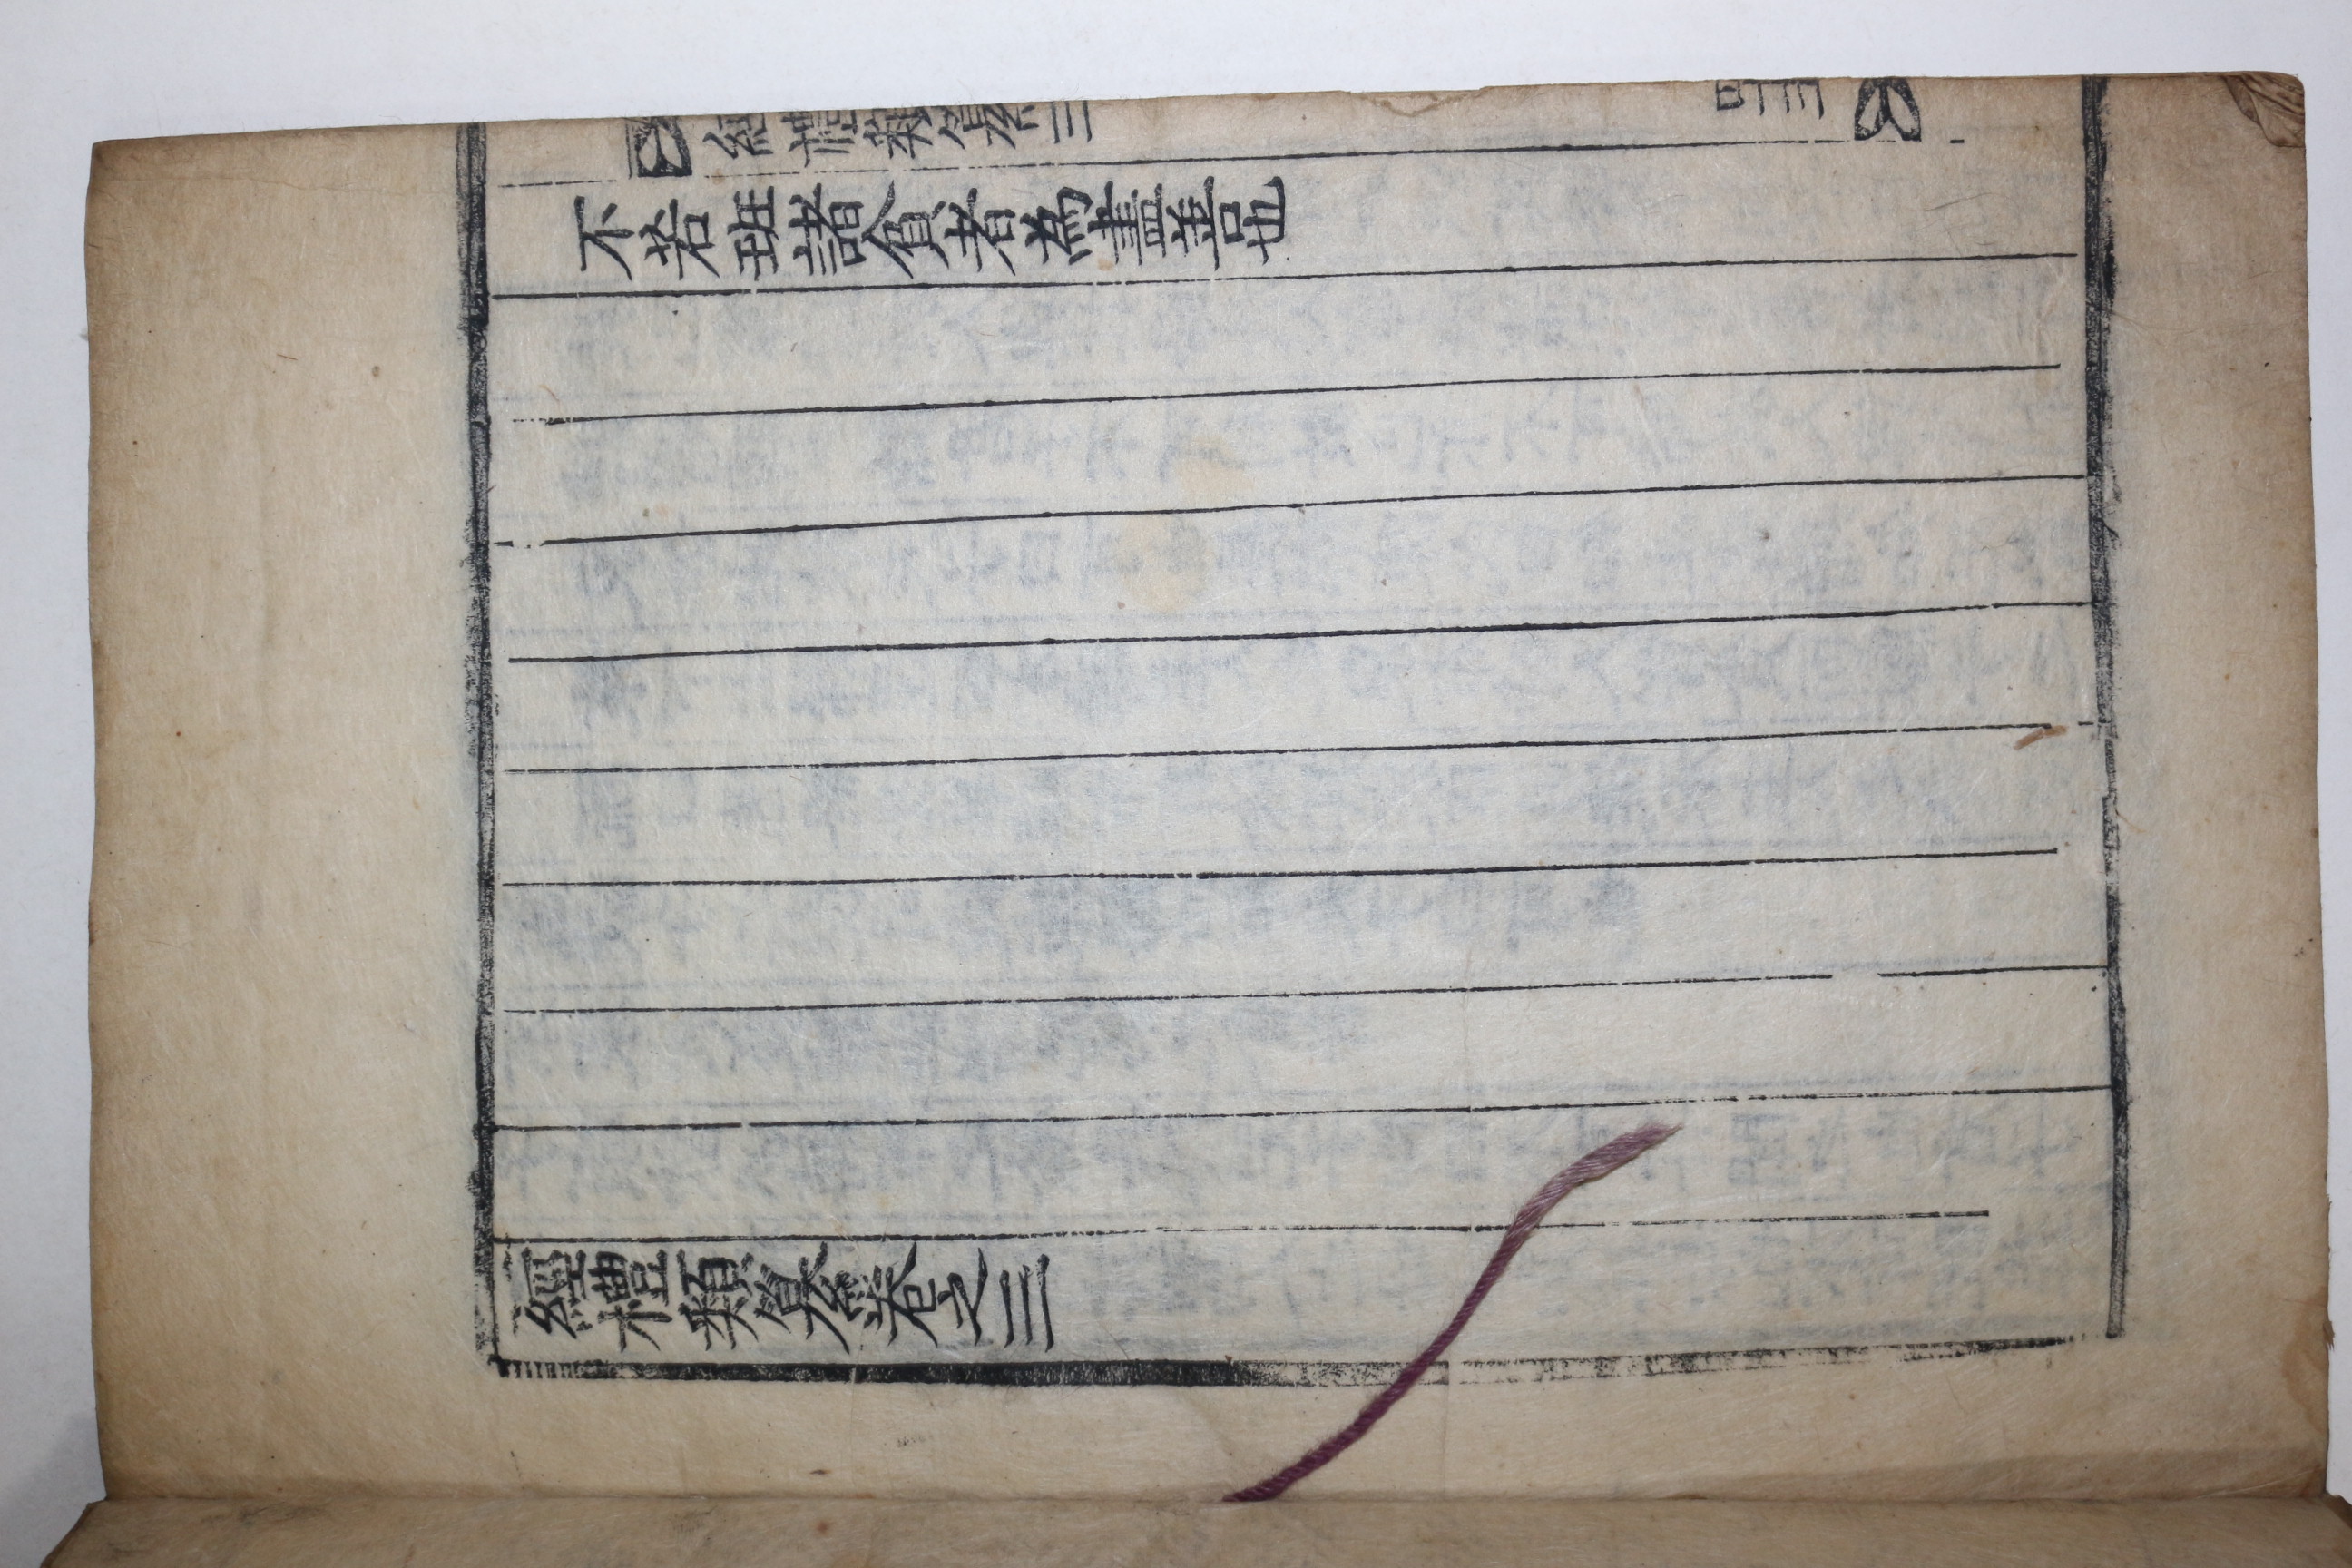 經禮類纂卷三
不若班諸貧者爲盡善也
經禮類纂卷之三